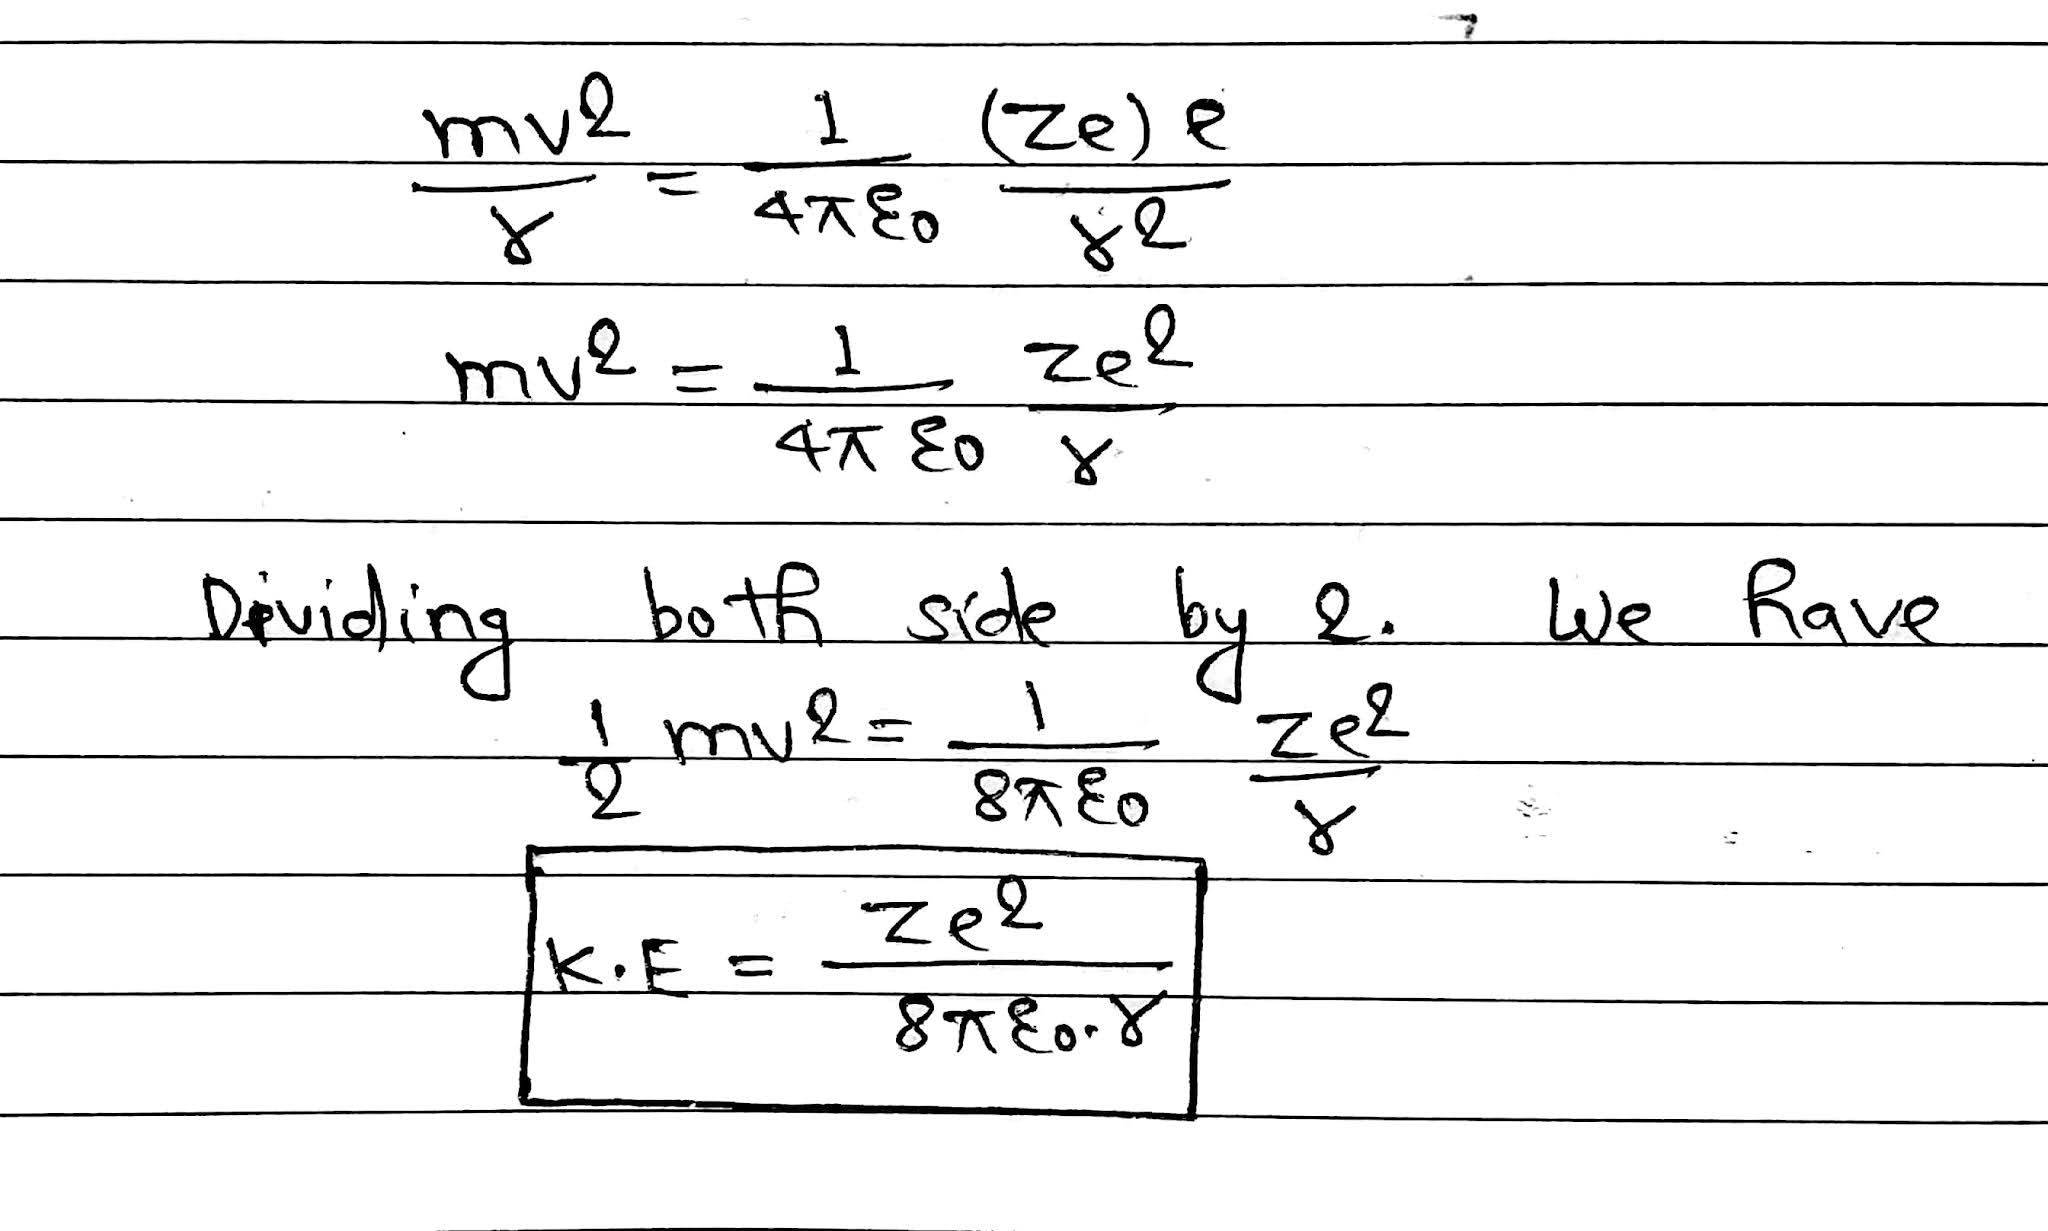 mv²/r = 1/4πε0 (Ze)e/r²
mv² = 1/4πε0 Ze²/r
Dividing both side by 2. We have
1/2 mv² = 1/8πε0 Ze²/r
K.E = Ze²/8πε0.r